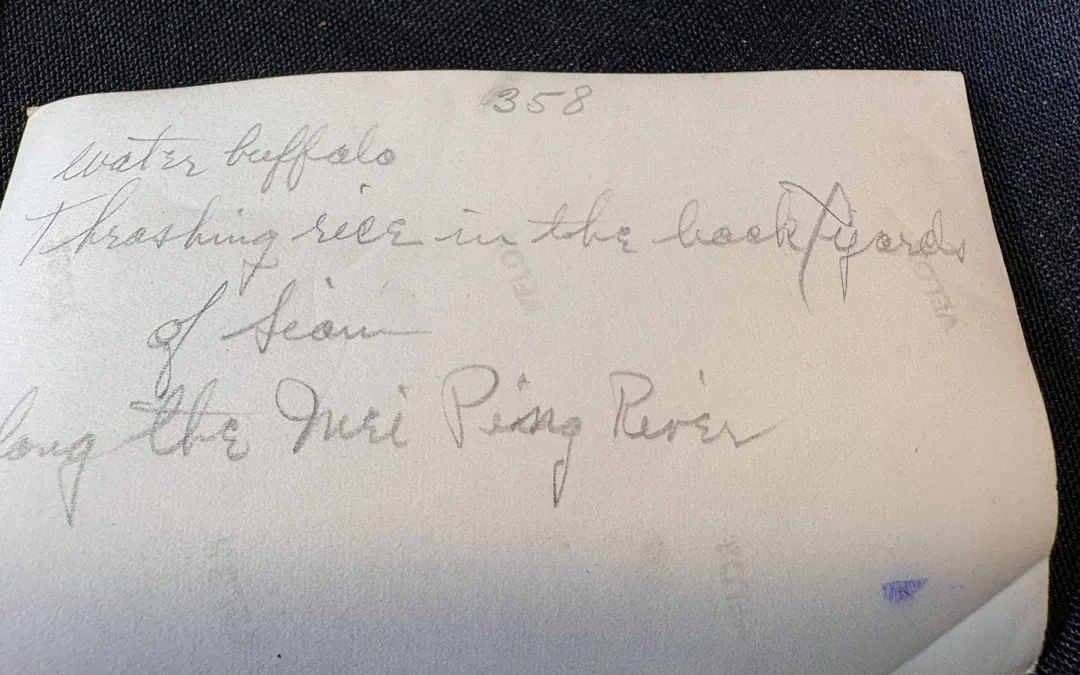 358
water buffalo
Thrashing rice in the back yards
of Siam
long the Mei Ping River
VELO
VELO